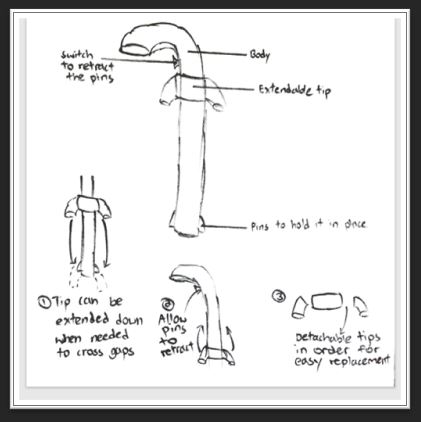 switch
to retract
the pins
Body
Extendable tip
Pins to hold it in place
① Tip can be
extended down
when needed
to cross gaps
② Allow
pins
to
retract
③
Detachable tips
in order for
easy replacement